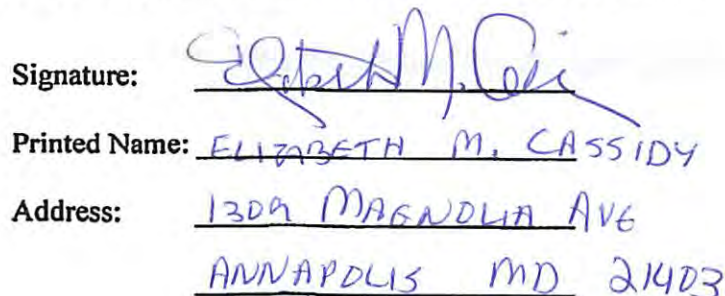 Signature: Elizabeth M. Cassidy
Printed Name: ELIZABETH M. CASSIDY
Address: 1309 MAGNOLIA AVE
ANNAPOLIS MD 21403